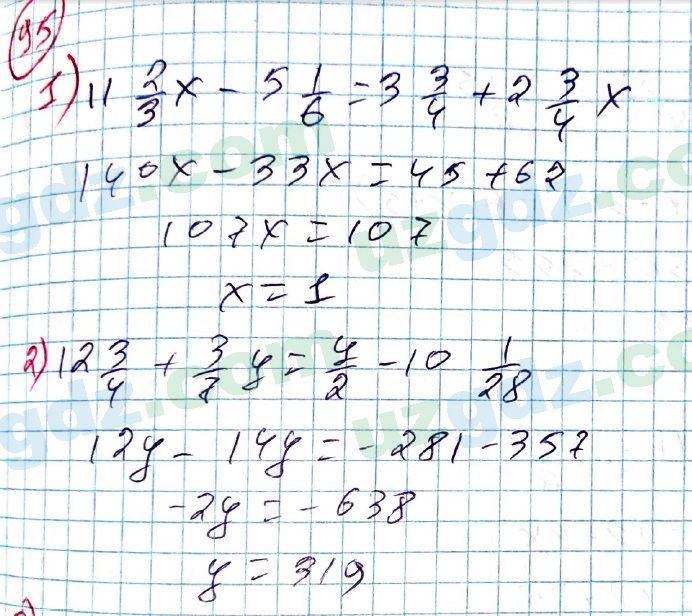 95
1) 11 2/3 x - 5 1/6 = 3 3/4 + 2 3/4 x
140x - 33x = 45 + 62
107x = 107
x = 1
2) 12 3/4 + 3/7 y = y/2 - 10 1/28
12y - 14y = -281 - 357
-2y = -638
y = 319
uzgdz.com
uzgdz.com